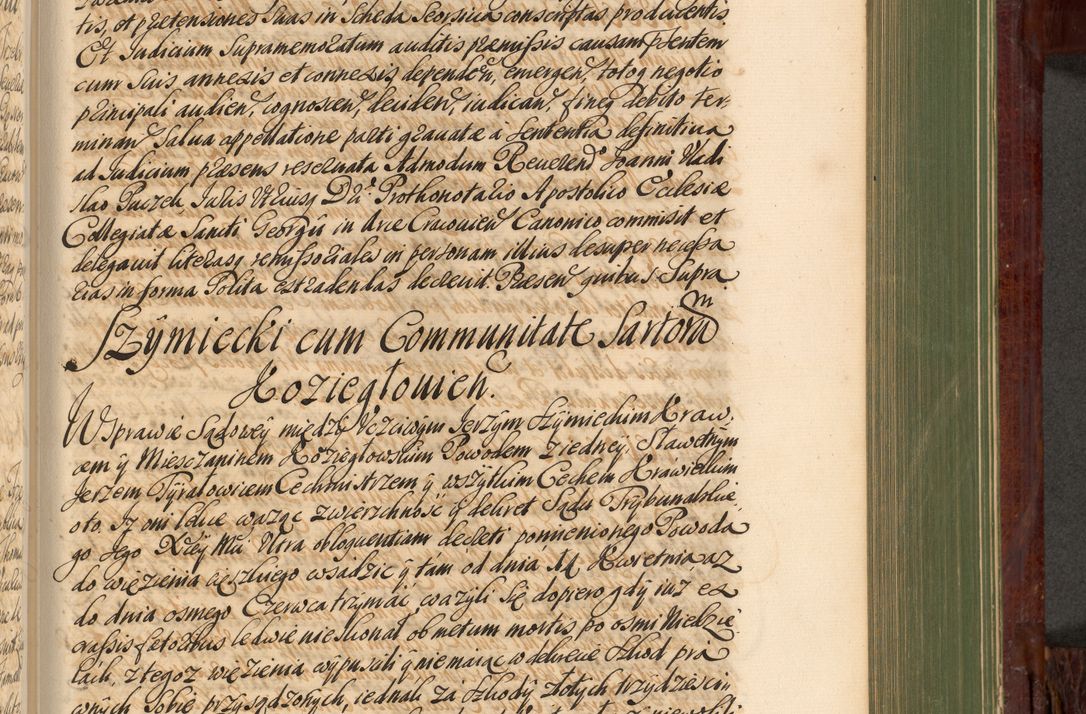 tis, et prætensiones suas in scheda seorsiva conscriptas producentis
Et Judicium supramemoratum auditis præmissis causam præsentem
cum suis annexis et connexis dependen, emergen, totoq negotio
principali audien, cognoscen, deciden, iudican, fineq debito ter-
minan salua appellatione parti grauatæ à sententia definitiua
ad Judicium præsens reseruata Admodum Reuerend Joanni Vladi
slao Paczek, Juris Vtriusq Dri Prothonotario Apostolico Ecclesiæ
Collegiatæ Sancti Georgii in Arce Cracouien Canonico commisit et
delegauit literasq remissoriales in personam illius desuper necessa
rias in forma solita extradendas decreuit. Præsen quibus supra
Szÿmiecki cum Communitate Sartorum
Koziegłouien.
W Sprawie Sądowey między Vczciwÿm Jerzÿm Szÿmieckim Kraw-
cem ÿ Miesczaninem Koziegłowskim Powodem z iedneÿ, Sławetnÿm
Jerzem Tÿrałowicem Cechmistrzem ÿ wszÿtkim Cechem Krawieckim
oto. Jz oni lekce ważąc zwierzchność ÿ dekret Sądu Trÿbunalskie
go Jego Xcey Mci Vtra obloquentiam decreti pomienionego Powoda
do więzienia cięszkiego wsadzic ÿ tam od dnia 14 Kwietnia asz
do dnia osmego Czerwca trzymać, ważyli się dopiero gdÿ iusz ex
crassis fætoribus ledwie nie skonał ob metum mortis, po osmi Niedzie
lach, z tegoz więzienia wÿpuscili ÿ nie maiąc w dekrecie szkod prá
wnÿch sobie przysądzonÿch, iednak zá szkodÿ złotÿch trzÿdziesci